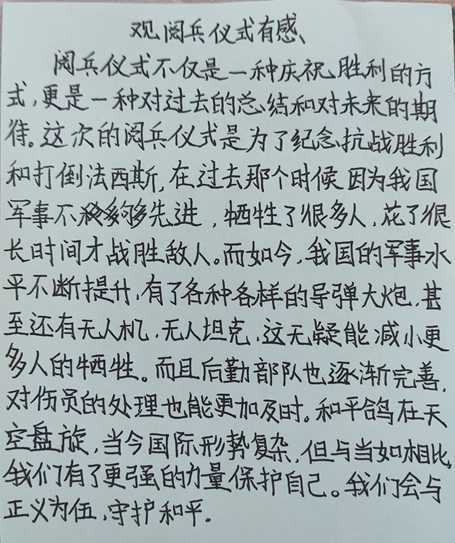 观阅兵仪式有感、
阅兵仪式不仅是一种庆祝胜利的方
式,更是一种对过去的总结和对未来的期
待。这次的阅兵仪式是为了纪念抗战胜利
和打倒法西斯,在过去那个时候因为我国
军事不够先进,牺牲了很多人,花了很
长时间才战胜敌人。而如今,我国的军事水
平不断提升,有了各种各样的导弹大炮,甚
至还有无人机,无人坦克,这无疑能减小更
多人的牺牲。而且后勤部队也逐渐完善,
对伤员的处理也能更加及时。和平鸽在天
空盘旋,当今国际形势复杂,但与当如相比,
我们有了更强的力量保护自己。我们会与
正义为伍,守护和平.